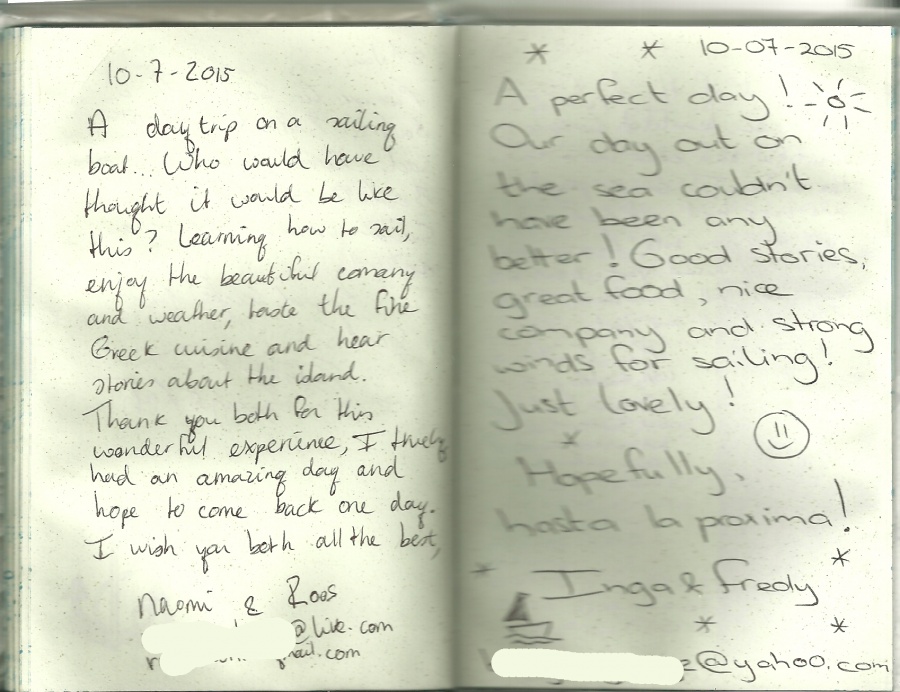 10-7-2015
A day trip on a sailing
boat... Who would have
thought it would be like
this? Learning how to sail,
enjoy the beautiful comany
and weather, taste the fine
Greek cuisine and hear
stories about the island.
Thank you both for this
wonderful experience, I truely
had an amazing day and
hope to come back one day.
I wish you both all the best,
Naomi & Roos
@live.com
mail.com
10-07-2015
A perfect day!
Our day out on
the sea couldn't
have been any
better! Good stories,
great food, nice
company and strong
winds for sailing!
Just lovely!
Hopefully,
hasta la proxima!
Inga & Fredy
z@yahoo.com